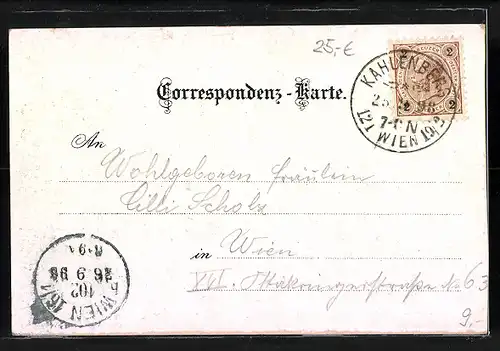 25,-€
KAHLENBERG
25 9 98
7-8 N
12/1 WIEN 19/3
2 2
Correspondenz-Karte.
An
Wohlgeboren Fräulein
Cilli Scholz
in Wien
XVI. Ottakringerstraße No 63
9,-
WIEN 16/1
102
26 9 98